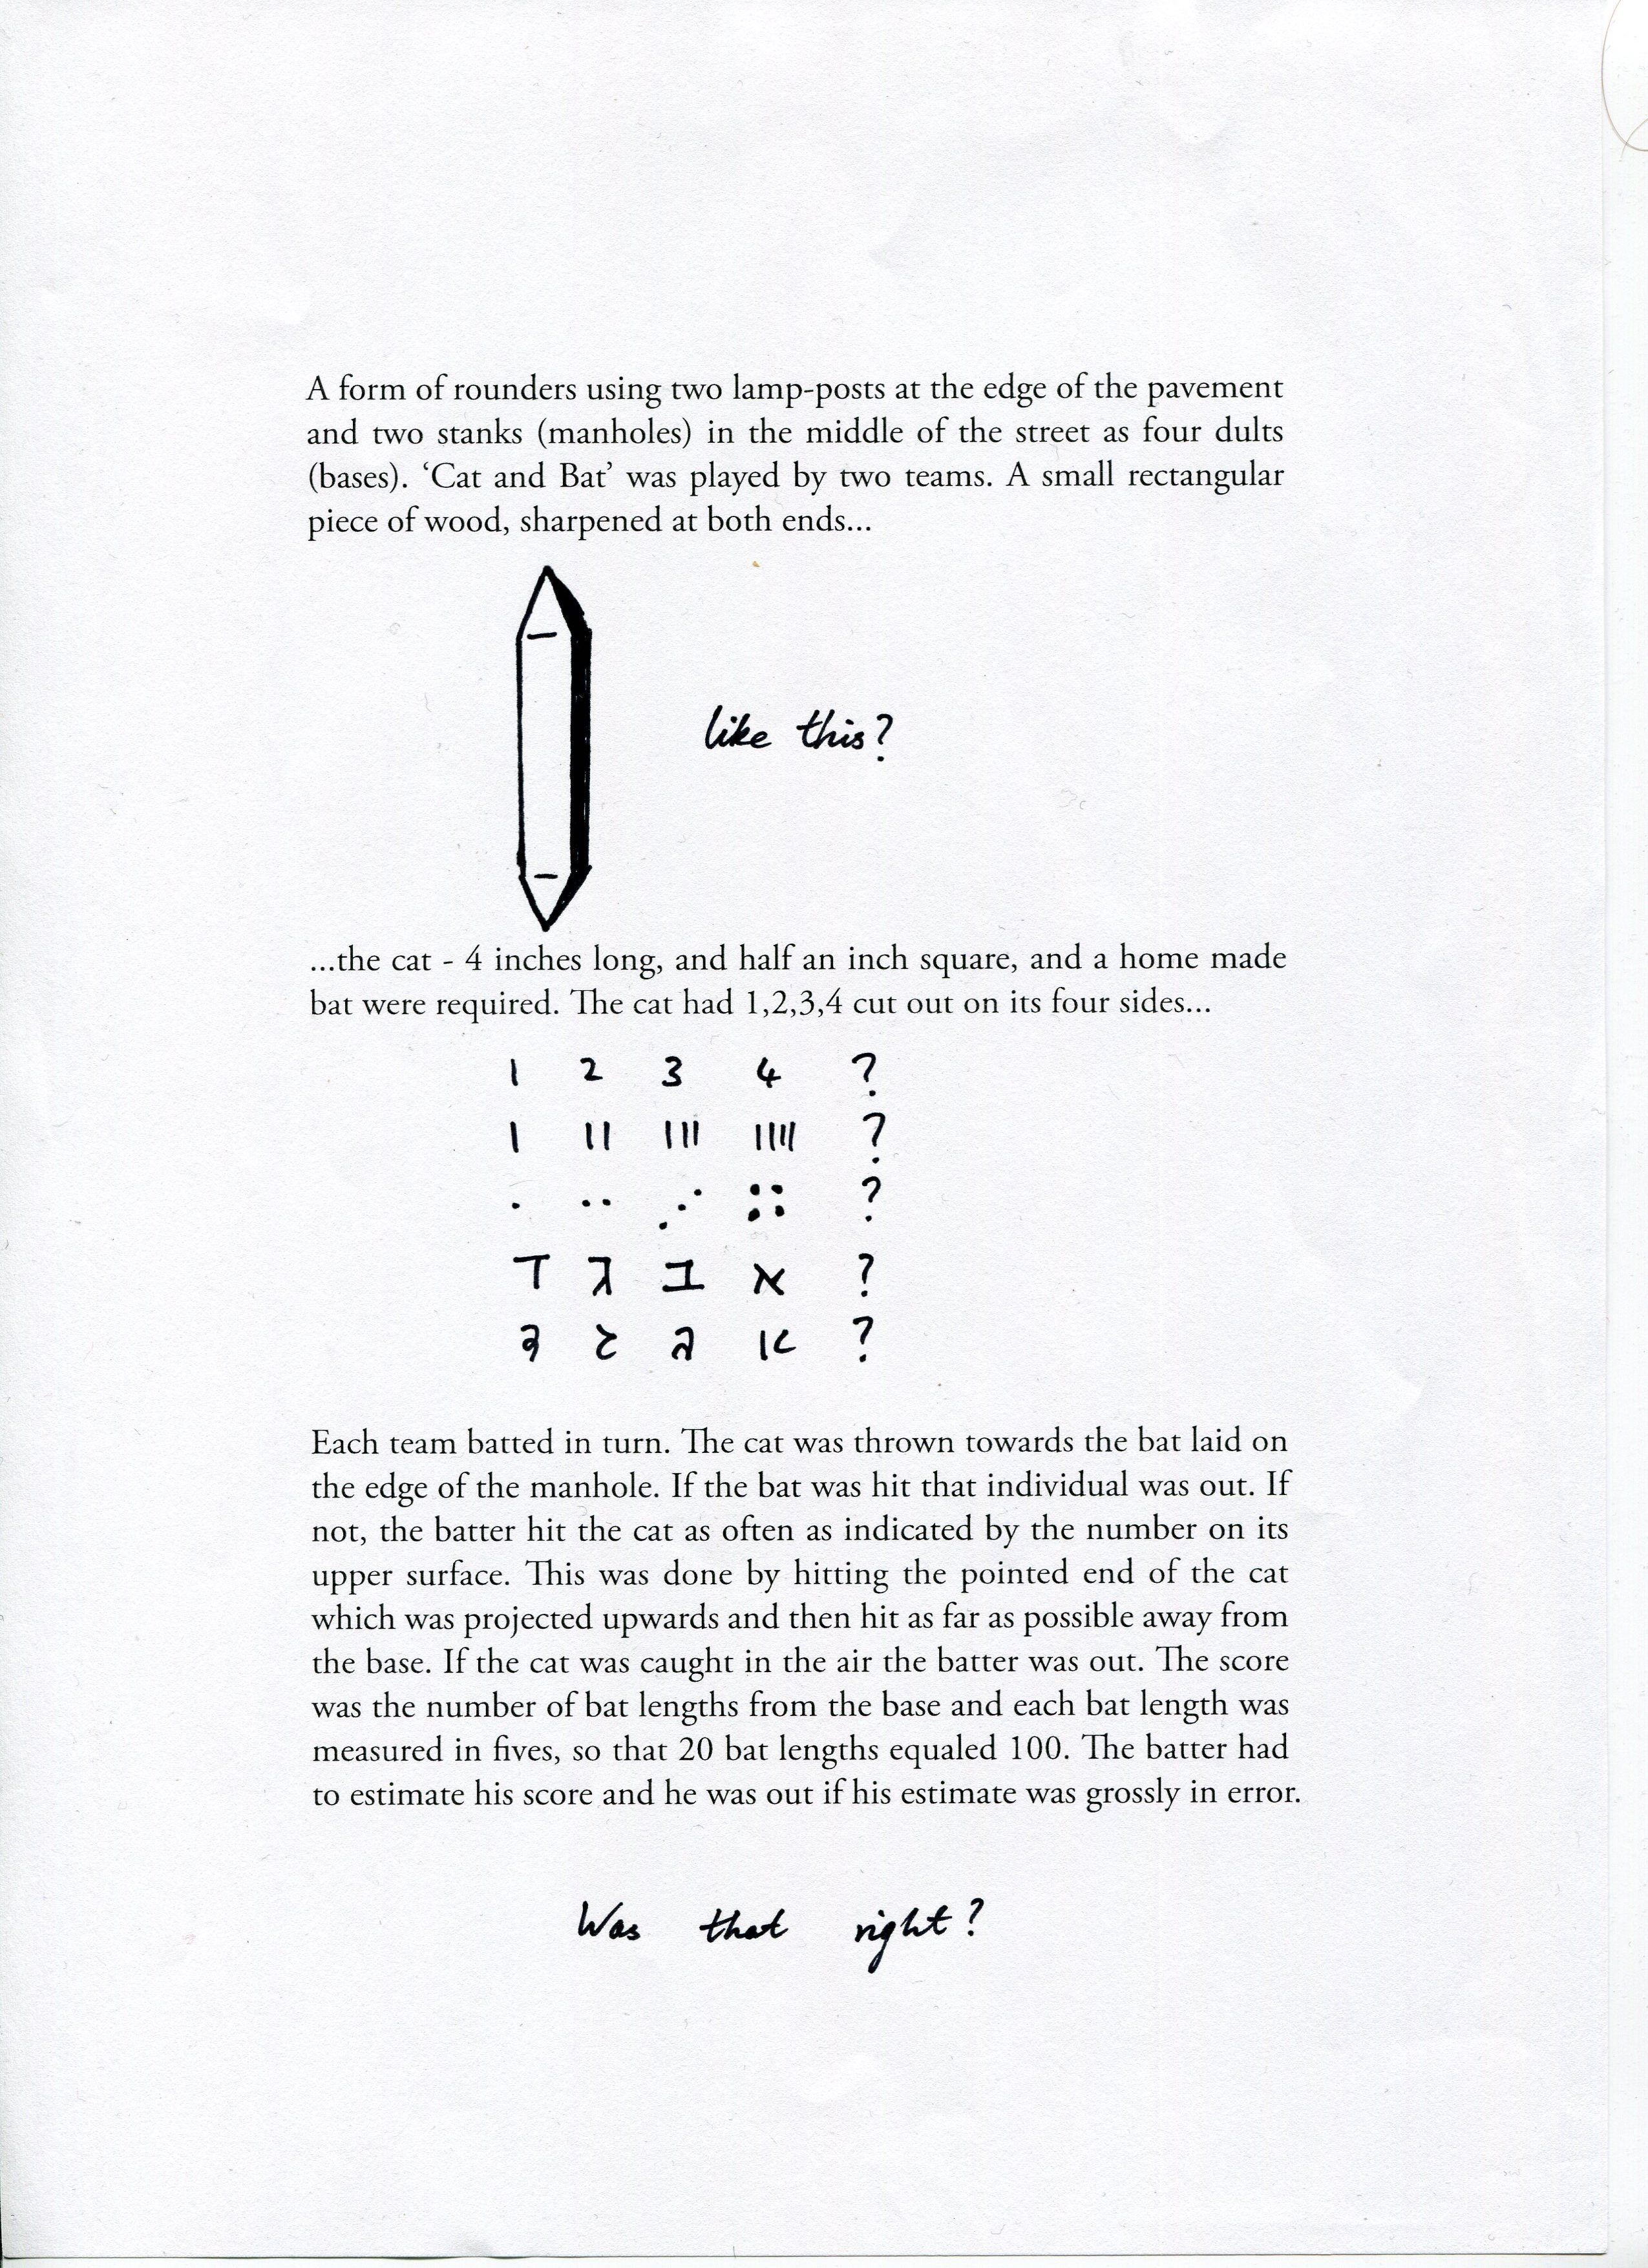 A form of rounders using two lamp-posts at the edge of the pavement
and two stanks (manholes) in the middle of the street as four dults
(bases). ‘Cat and Bat’ was played by two teams. A small rectangular
piece of wood, sharpened at both ends...
like this?
...the cat - 4 inches long, and half an inch square, and a home made
bat were required. The cat had 1,2,3,4 cut out on its four sides...
1 2 3 4 ?
I II III IIII ?
. .. ⋰ :: ?
א ב ג ד ?
א ב ג ד ?
Each team batted in turn. The cat was thrown towards the bat laid on
the edge of the manhole. If the bat was hit that individual was out. If
not, the batter hit the cat as often as indicated by the number on its
upper surface. This was done by hitting the pointed end of the cat
which was projected upwards and then hit as far as possible away from
the base. If the cat was caught in the air the batter was out. The score
was the number of bat lengths from the base and each bat length was
measured in fives, so that 20 bat lengths equaled 100. The batter had
to estimate his score and he was out if his estimate was grossly in error.
Was that right?